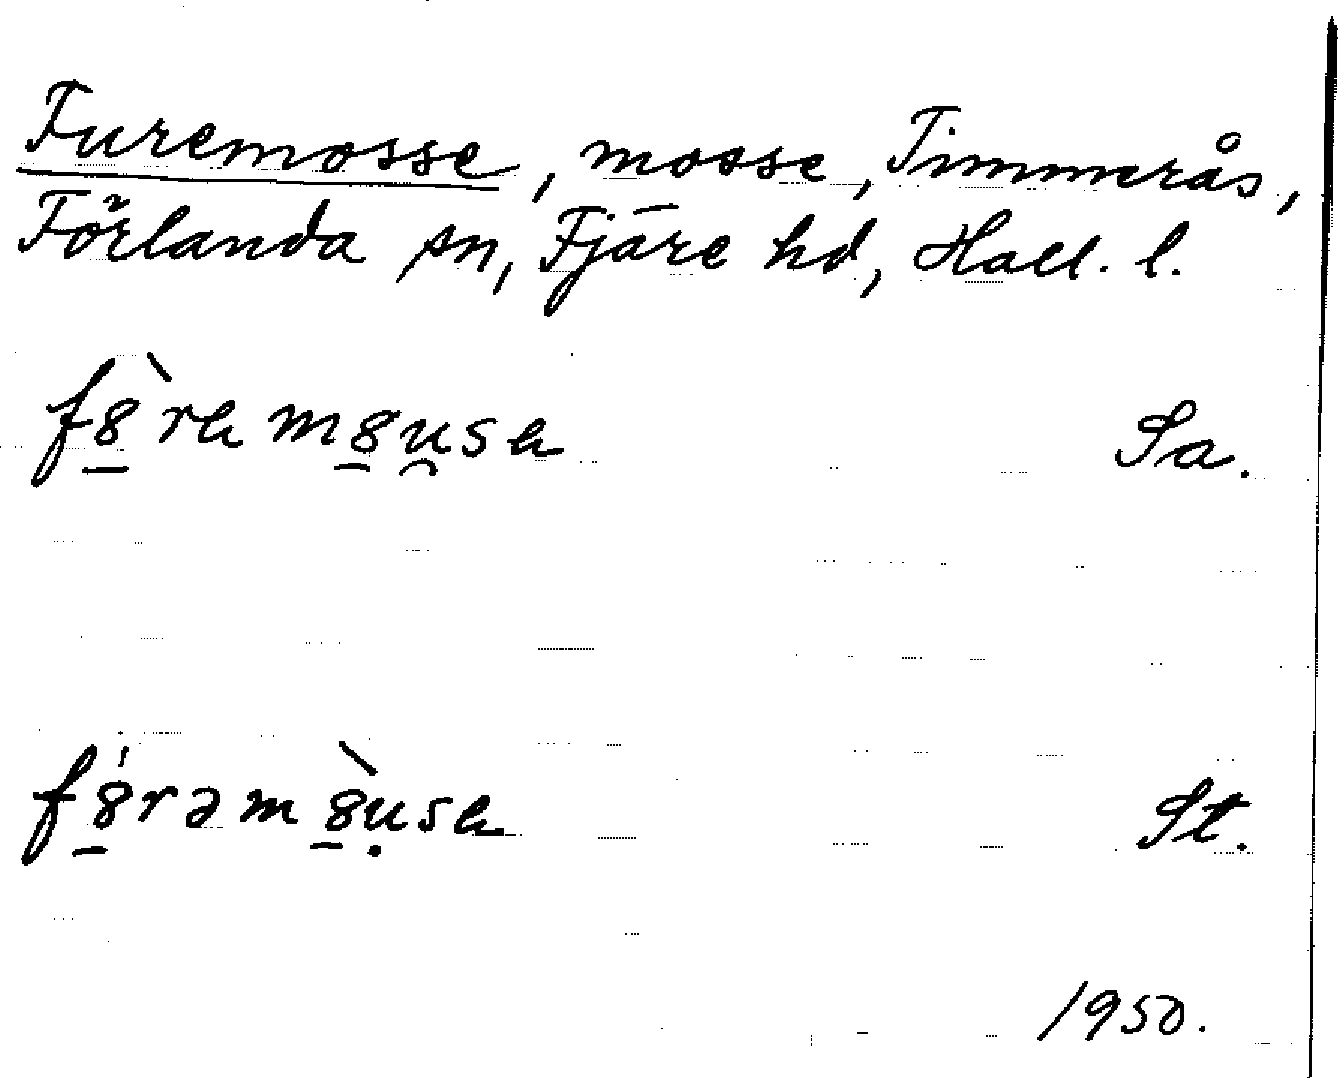 Furemosse, mosse, Timmerås,
Förlanda sn, Fjäre hd, Hall. l.
fȣ̱̀ra mȣ̱u̯sa Sa.
fȣ̱́rəmȣ̱̀ụsa St.
1950.